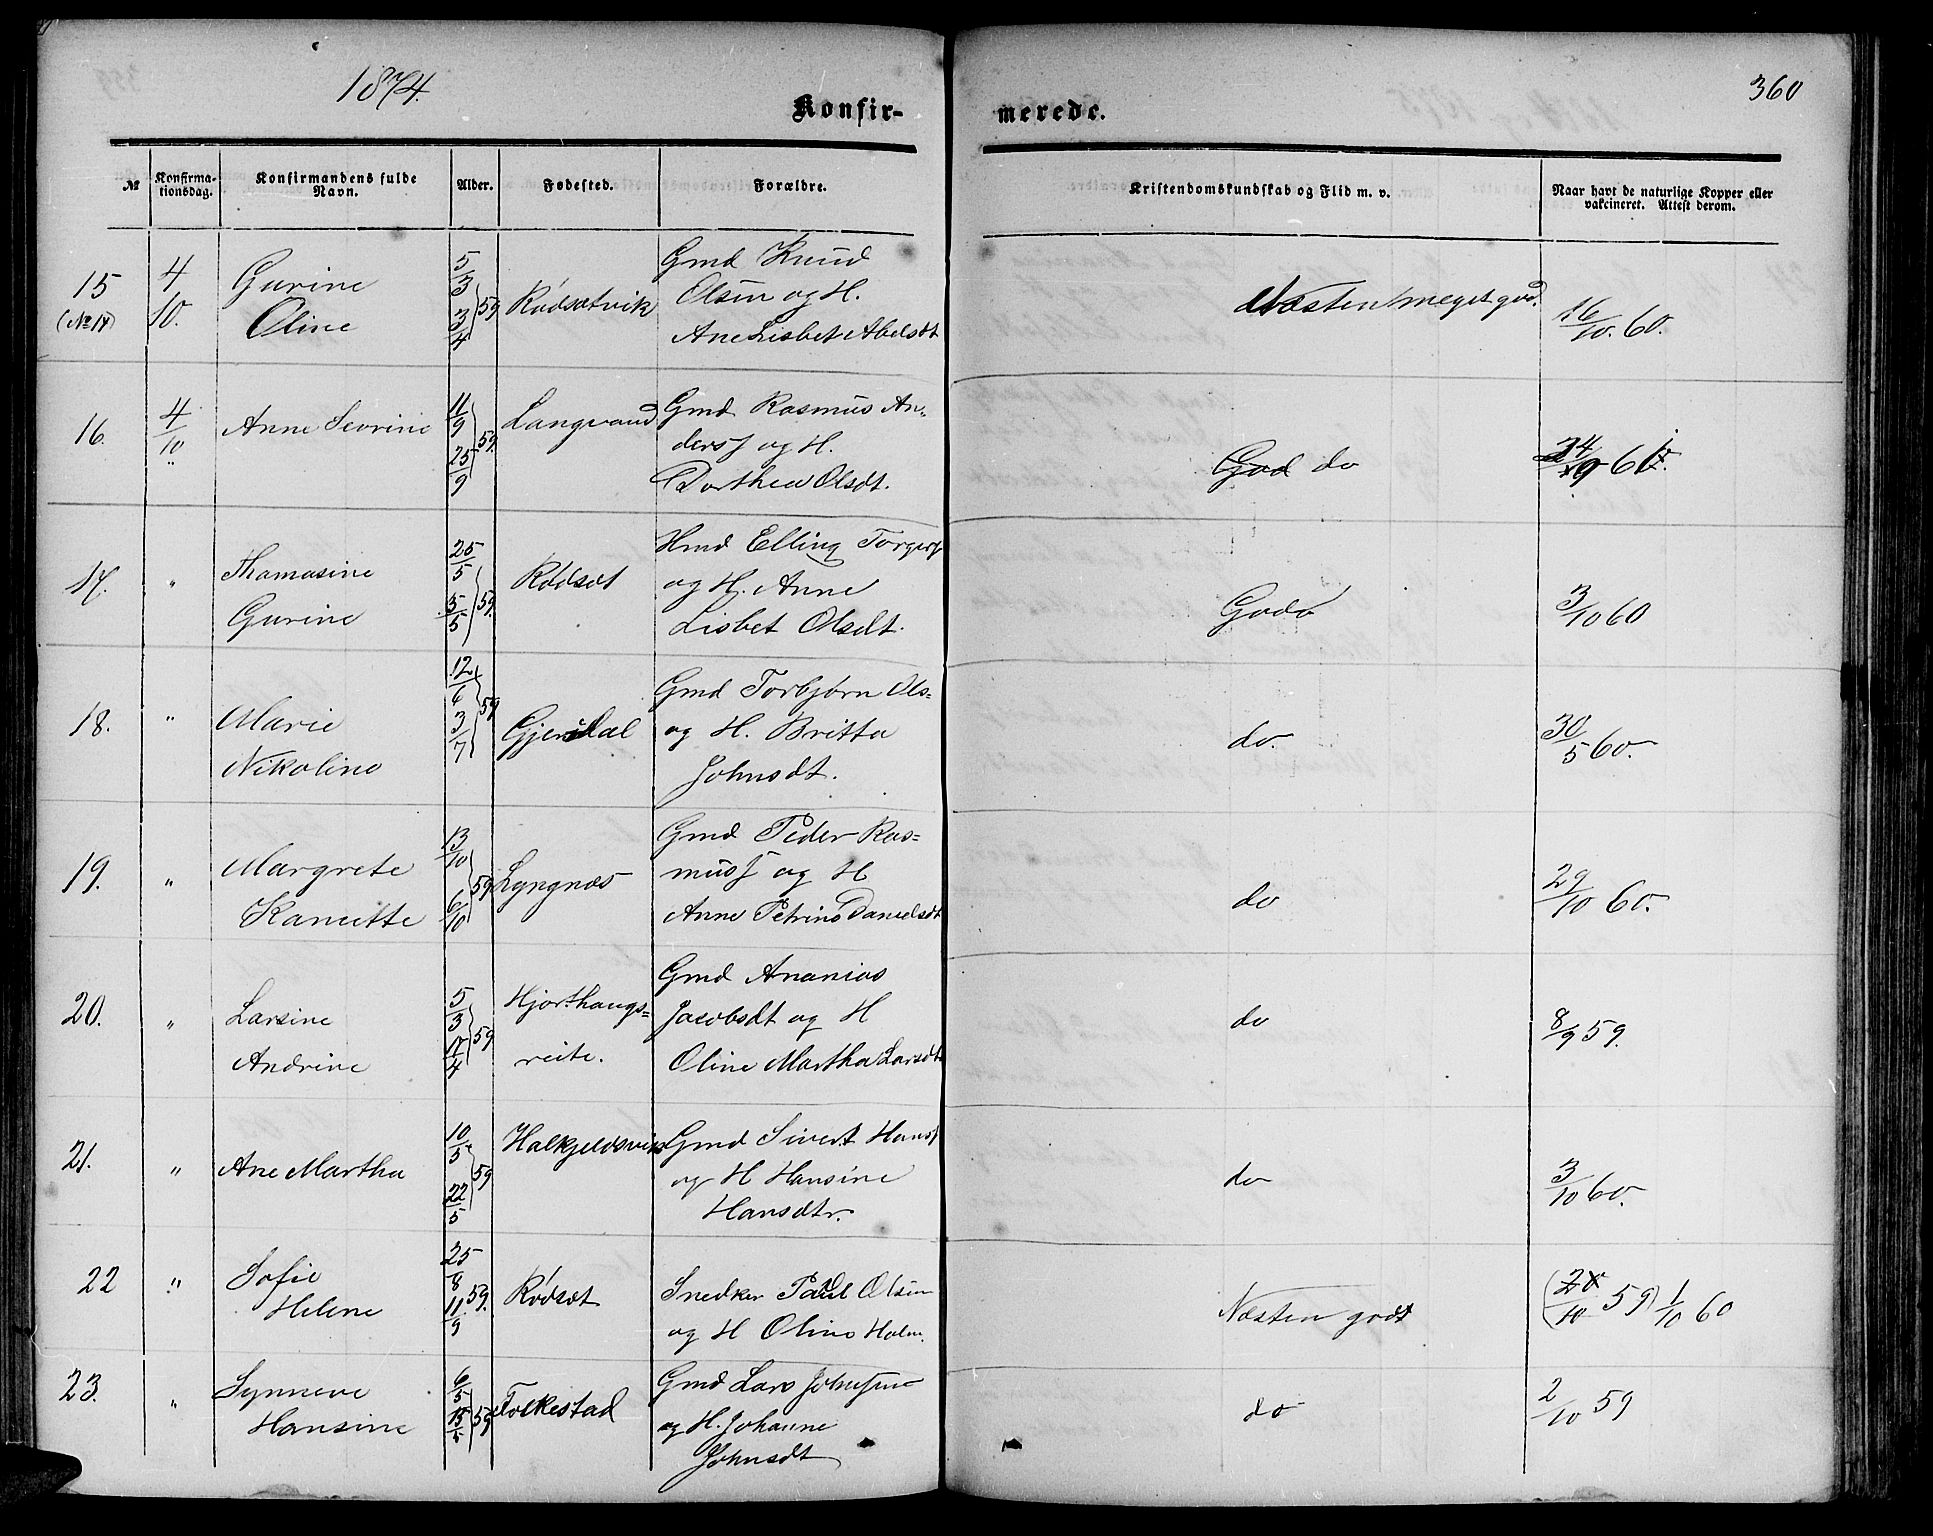 1874.
360
Konfir-
merede.
№
Konfirma-
tionsdag.
Konfirmandens fulde
Navn.
Alder.
Fødested.
Forældre.
Kristendomskundskab og Flid m. v.
Naar havt de naturlige Kopper eller
vakcineret. Attest derom.
15 (№ 14) 4/10. Gurine Oline 5/3 3/4 59 Rødsætvik Gmd Knud
Olsen og H.
Ane Lisbet Abelsdt
Næsten meget god. 16/10. 60.
16. 4/10 " Anne Sevrine 11/9 25/9 59. Langvand Gmd Rasmus An-
ders f og H.
Dorthea Olsdt.
God do 60.
17. " Thomasine Gurine 25/5 5/5 59. Rødsæt Hmd Elling Torgersf
og H. Anne
Lisbet Olsdt.
Godo 3/10 60
18. " Marie Nikoline 12/6 3/7 59 Gjerdal Gmd Torbjørn Ols-
og H. Britta
Johnsdt.
do. 30/5 60.
19. " Margrete Kanutte 13/10 6/10 59 Lyngnæs Gmd Peder Ras-
musf og H
Anne Petrine Danielsdt
do 29/10 60.
20. " Larsine Andrine 5/3 17/4 59 Hjorthaugs-
reite. Gmd Ananias
Jacobsdt og H
Oline Martha Larsdt
do 8/9 59.
21. " Ane Martha 10/5 22/5 59 Halkjeldsvik Gmd Sivert Hansf
og H Hansine
Hansdtr.
do 3/10 60.
22 " Sofie Helene 25/8 11/9 59. Rødsæt Snedker Paul Olsen
og H Oline Holm.
Næsten godt (20/10 59) 1/10 60
23. " Synneve Hansine 6/5 15/5 59 Folkestad Gmd Lars Johnsen
og H. Johanne
Johnsdt
do 2/10 59